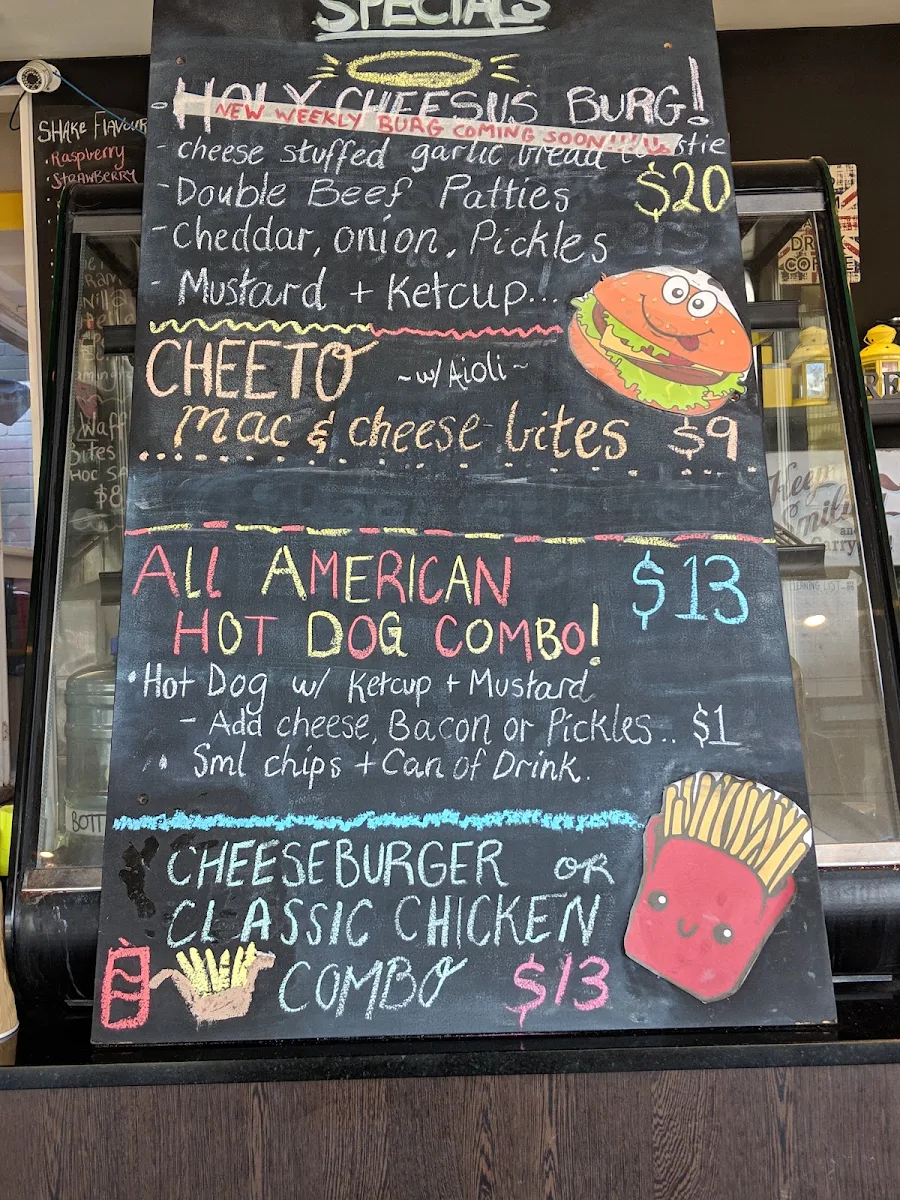 SPECIALS
HOLY CHEESUS BURG!
NEW WEEKLY BURG COMING SOON!!!
- cheese stuffed garlic bread
$20
- Double Beef Patties
- Cheddar, onion, Pickles
- Mustard + Ketcup...
CHEETO ~w/Aioli~
mac & cheese bites $9
ALL AMERICAN $13
HOT DOG COMBO!
• Hot Dog w/ Ketcup + Mustard
- Add cheese, Bacon or Pickles.. $1
• Sml chips + Can of Drink.
CHEESEBURGER OR
CLASSIC CHICKEN
COMBO $13
SHAKE FLAVOUR
• Raspberry
• STRAWBERRY
Waff
$8
BOTT
Keep
and
Carry